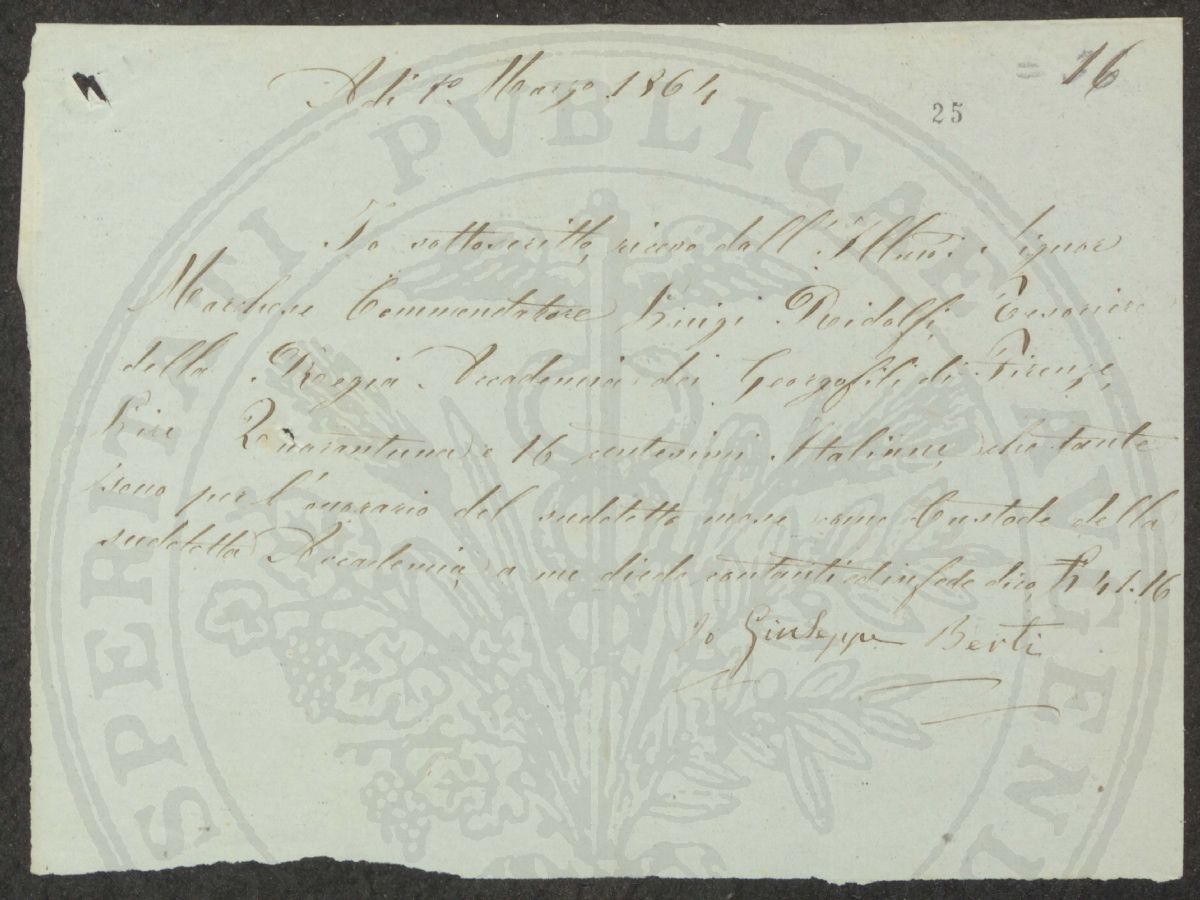 16
25
A dì 1° Marzo 1864
Io sottoscritto, ricevo dall'Illmo. Signor
Marchese Commendatore Luigi Ridolfi, Tesoriere
della Regia Accademia dei Georgofili di Firenze,
Lire Quarantuna e 16 centesimi Italiane, che tante
sono per l'onorario del suddetto mese come Custode della
suddetta Accademia, a me diede contanti ed in fede dico, £ 41.16
Io Giuseppe Berti
PVBLICAE
SPERITATI
AVGEN